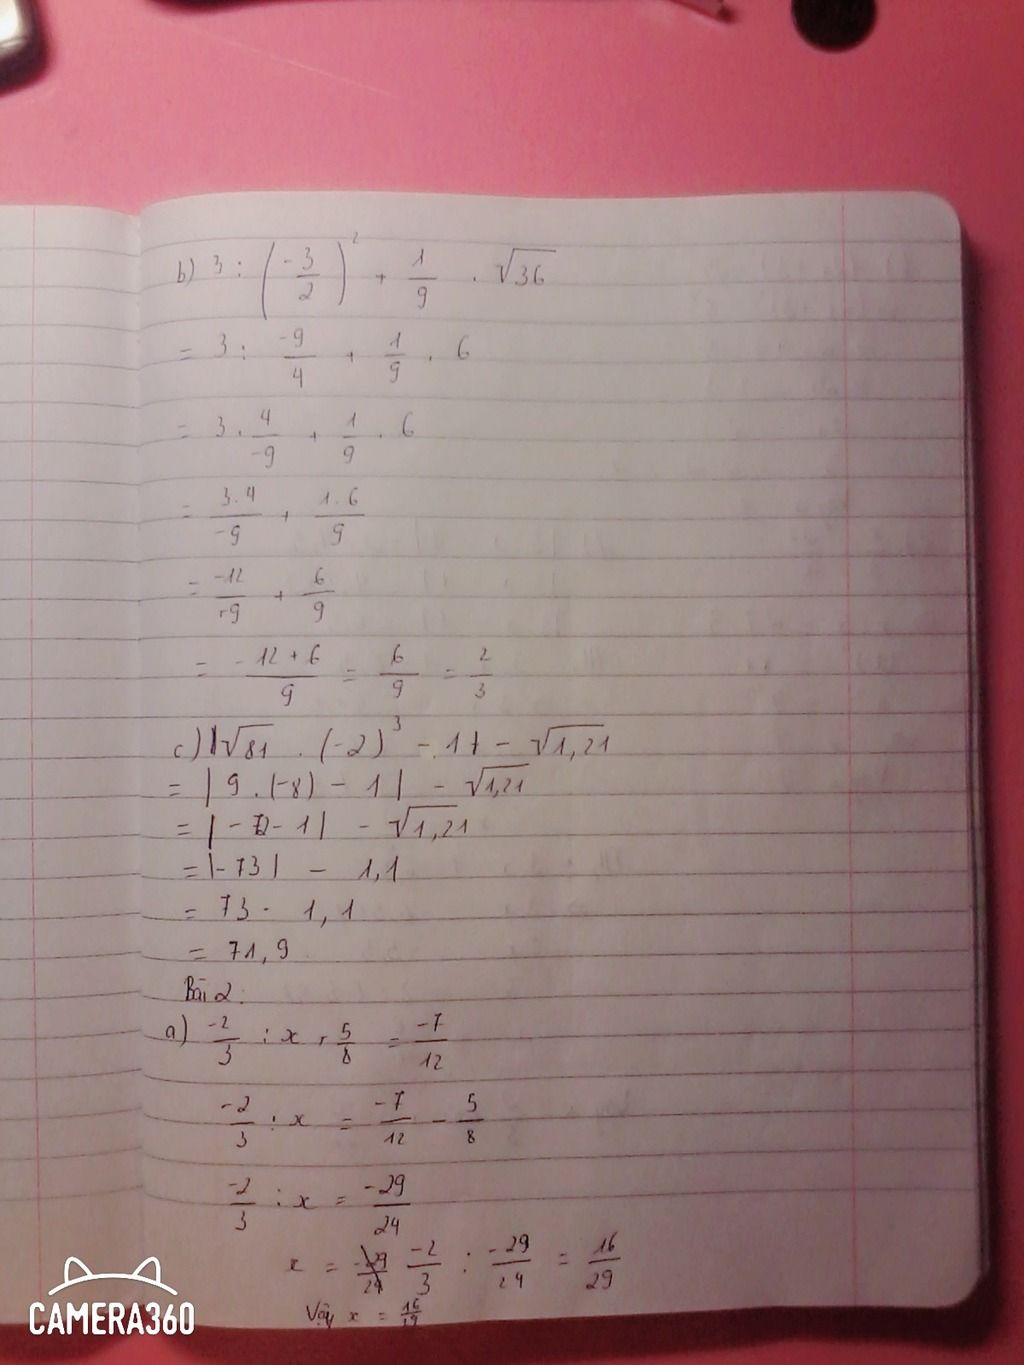 b) 3 : (-3/2)² + 1/9 . √36
= 3 : -9/4 + 1/9 . 6
= 3 . 4/-9 + 1/9 . 6
= 3.4/-9 + 1.6/9
= -12/+9 + 6/9
= -12+6/9 = 6/9 = 2/3
c) |√81 . (-2)³ - 1| - √1,21
= | 9 . (-8) - 1 | - √1,21
= | -72 - 1 | - √1,21
= |-73| - 1,1
= 73 - 1,1
= 71,9
Bài 2:
a) -2/3 : x + 5/8 = -7/12
-2/3 : x = -7/12 - 5/8
-2/3 : x = -29/24
x = -29/24 -2/3 : -29/24 = 16/29
Vậy x = 16/29
CAMERA360